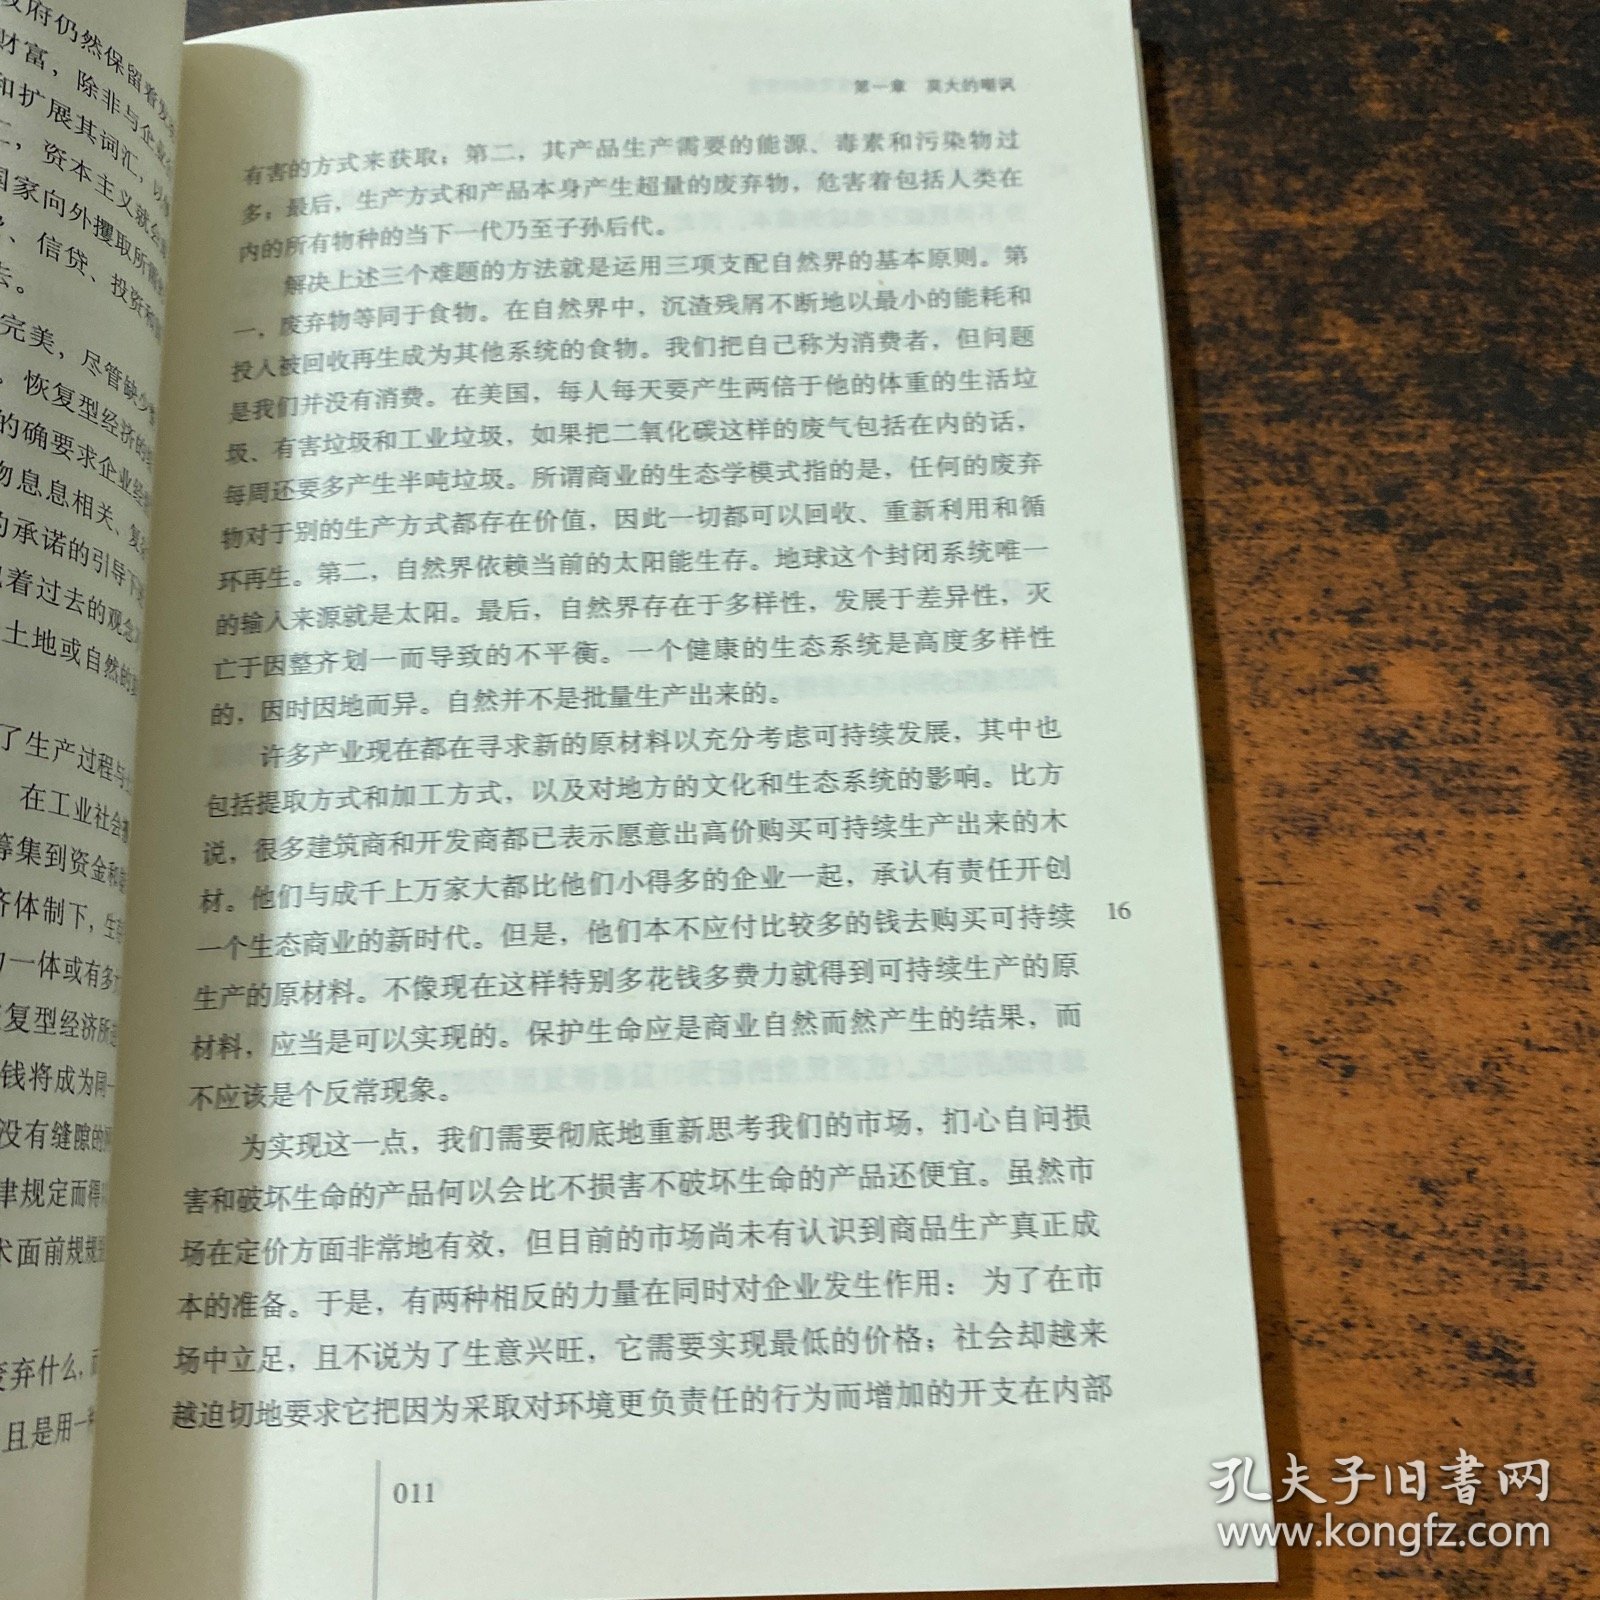 政府仍然保留着发
财富，除非与企业
和扩展其词汇，以
二，资本主义就会
国家向外攫取所
、信贷、投资和
去。
完美，尽管缺少
。恢复型经济的
的确要求企业经
物息息相关、复
的承诺的引导下
着过去的观念
土地或自然的
了生产过程与
在工业社会
筹集到资金和
济体制下，生
一体或有多
复型经济所
钱将成为同一
没有缝隙的
律规定而得
术面前规规
弃什么，
且是用一种
第一章 莫大的嘲讽
有害的方式来获取；第二，其产品生产需要的能源、毒素和污染物过
多；最后，生产方式和产品本身产生超量的废弃物，危害着包括人类在
内的所有物种的当下一代乃至子孙后代。
解决上述三个难题的方法就是运用三项支配自然界的基本原则。第
一，废弃物等同于食物。在自然界中，沉渣残屑不断地以最小的能耗和
投入被回收再生成为其他系统的食物。我们把自己称为消费者，但问题
是我们并没有消费。在美国，每人每天要产生两倍于他的体重的生活垃
圾、有害垃圾和工业垃圾，如果把二氧化碳这样的废气包括在内的话，
每周还要多产生半吨垃圾。所谓商业的生态学模式指的是，任何的废弃
物对于别的生产方式都存在价值，因此一切都可以回收、重新利用和循
环再生。第二，自然界依赖当前的太阳能生存。地球这个封闭系统唯一
的输入来源就是太阳。最后，自然界存在于多样性，发展于差异性，灭
亡于因整齐划一而导致的不平衡。一个健康的生态系统是高度多样性
的，因时因地而异。自然并不是批量生产出来的。
许多产业现在都在寻求新的原材料以充分考虑可持续发展，其中也
包括提取方式和加工方式，以及对地方的文化和生态系统的影响。比方
说，很多建筑商和开发商都已表示愿意出高价购买可持续生产出来的木
材。他们与成千上万家大都比他们小得多的企业一起，承认有责任开创
一个生态商业的新时代。但是，他们本不应付比较多的钱去购买可持续
生产的原材料。不像现在这样特别多花钱多费力就得到可持续生产的原
材料，应当是可以实现的。保护生命应是商业自然而然产生的结果，而
不应该是个反常现象。
为实现这一点，我们需要彻底地重新思考我们的市场，扪心自问损
害和破坏生命的产品何以会比不损害不破坏生命的产品还便宜。虽然市
场在定价方面非常地有效，但目前的市场尚未有认识到商品生产真正成
本的准备。于是，有两种相反的力量在同时对企业发生作用： 为了在市
场中立足，且不说为了生意兴旺，它需要实现最低的价格；社会却越来
越迫切地要求它把因为采取对环境更负责任的行为而增加的开支在内部
16
011
孔夫子旧书网
www.kongfz.com